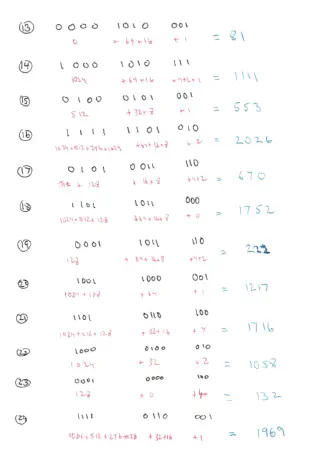 (13) 0000 1010 001
0 + 64+16 + 1 = 81
(14) 1000 1010 111
1024 + 64+16 +4+2+1 = 1111
(15) 0100 0101 001
512 + 32+8 + 1 = 553
(16) 1111 1101 010
+ 2 = 2026
(17) 0101 0011 110
+ 128 + 16+8 +4+2 = 670
(18) 1101 1011 000
1024+512+128 +64+16+8 + 0 = 1752
(19) 0001 1011 110
128 + 64+16+8 +4+2 = 222
(20) 1001 1000 001
1024 + 128 + 64 + 1 = 1217
(21) 1101 0110 100
1024+512+128 + 32+16 + 4 = 1716
(22) 1000 0100 010
1024 + 32 + 2 = 1058
(23) 0001 0000 100
128 + 0 + 4 = 132
(24) 1111 0110 001
+ 32+16 + 1 = 1969